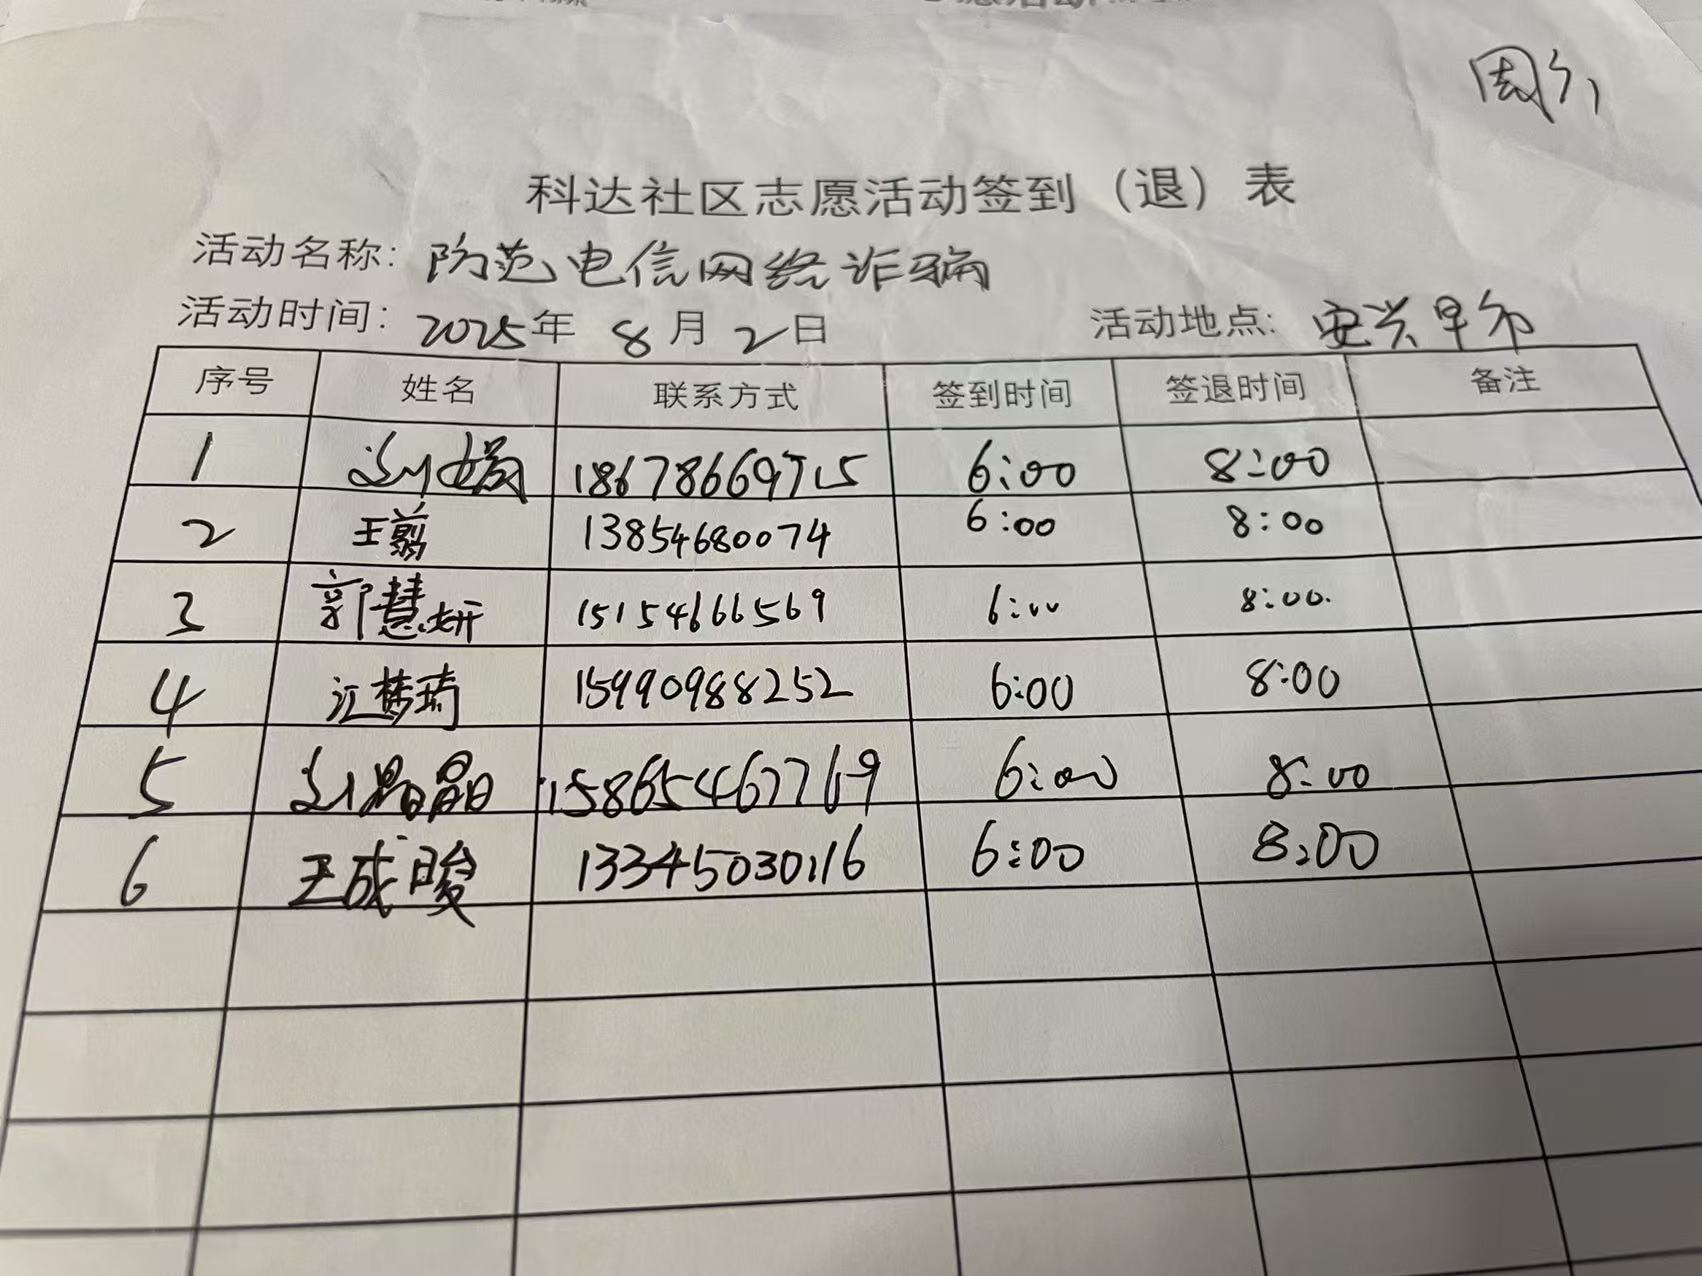 科达社区志愿活动签到（退）表
活动名称: 防范电信网络诈骗
活动时间: 2025年 8月 2日 活动地点: 安兴早市
序号 姓名 联系方式 签到时间 签退时间 备注
1 刘娟 18678669715 6:00 8:00
2 王翦 13854680074 6:00 8:00
3 郭慧妍 15154666569 6:00 8:00.
4 江梦琦 15990988252 6:00 8:00
5 刘晶晶 15865467769 6:00 8:00
6 王成晙 13345030116 6:00 8:00